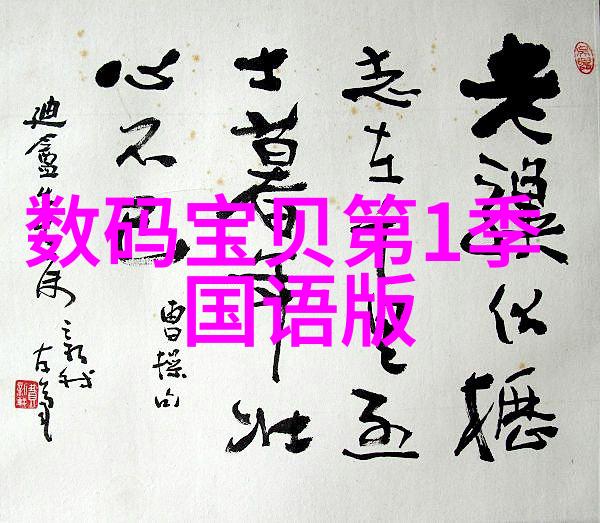 数码宝贝第1季
国语版
老骥伏枥
志在千里烈
士暮年壮
心不已
曹操句